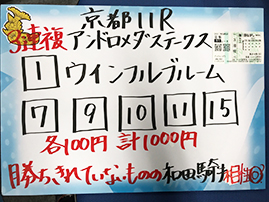 京都11R
3連複 アンドロメダステークス
1 ウインフルブルーム
7 9 10 11 15
各100円 計1000円
勝ちきれていないものの和田騎手相性◎